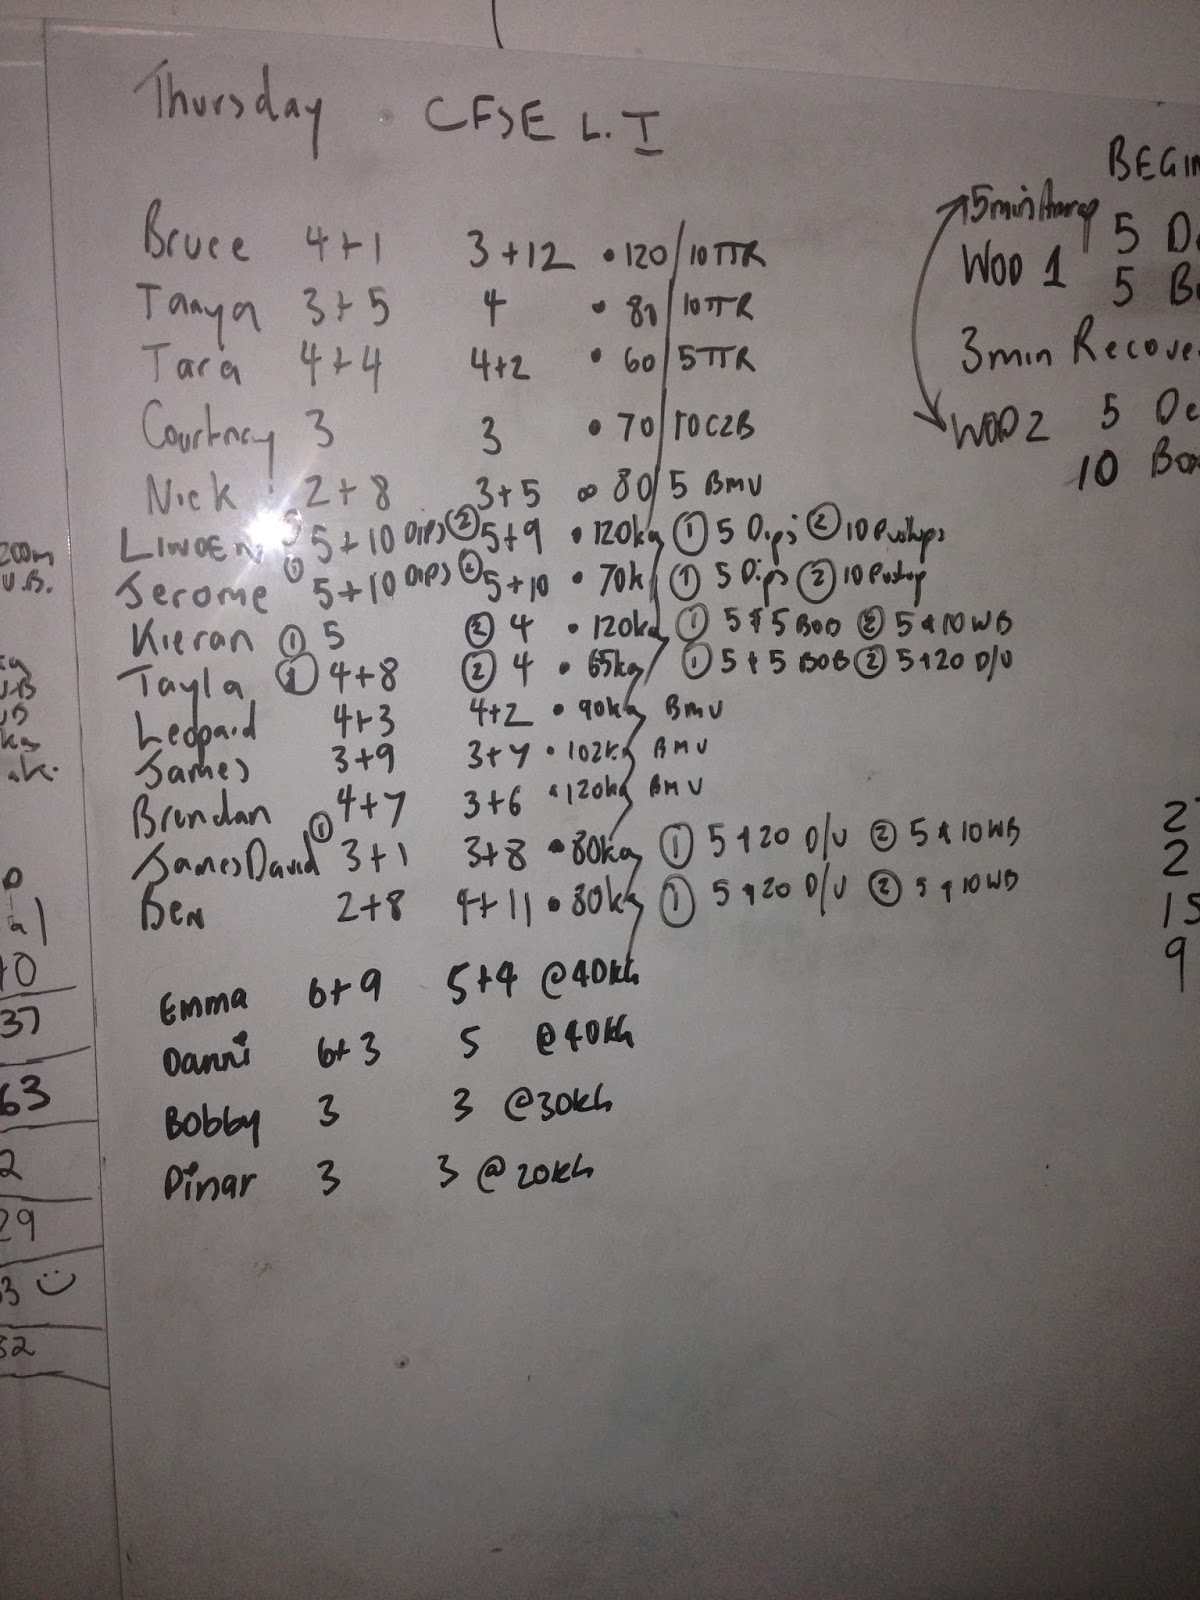 Thursday . CFSE L.I
Bruce 4+1 3+12 • 120/10 TTR
Tanya 3+5 4 • 80/10TTR
Tara 4+4 4+2 • 60/5TTR
Courtney 3 3 • 70/10C2B
Nick 2+8 3+5 80/5 BMU
LINDEN ① 5+10 DIPS ② 5+9 • 120kg ① 5 Dips ② 10 Pushups
Jerome ① 5+10 DIPS ② 5+10 • 70k ① 5 Dips ② 10 Pushup
Kieran ① 5 ② 4 • 120kg ① 5 + 5 BOB ② 5 + 10 WB
Tayla ① 4+8 ② 4 • 65kg/ ① 5 + 5 BOB ② 5 + 20 D/U
Leopard 4+3 4+2 • 90kg BMU
James 3+9 3+7 • 102kg BMU
Brendan 4+7 3+6 • 120kg BMU
James David ① 3+1 3+8 • 80kg ① 5 + 20 D/U ② 5 + 10 WB
Ben 2+8 4+11 • 80kg ① 5 + 20 D/U ② 5 + 10 WB
Emma 6+9 5+4 @40KG
Danni 6+3 5 @40KG
Bobby 3 3 @30KG
Pinar 3 3 @20KG
BEGIN
5min Amrap
WOD 1 5 De
5 Bo
3min Recove
WOD 2 5 De
10 Box
2
2
15
9
200m
U.B.
40
37
63
2
29
3
32